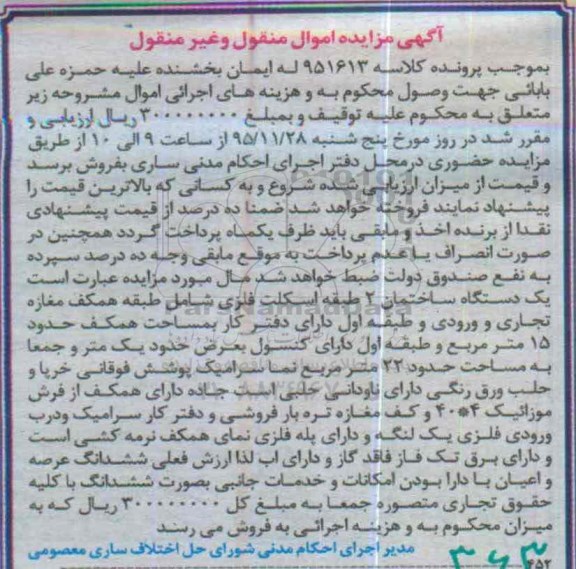 آگهی مزایده اموال منقول وغیر منقول
بموجب پرونده کلاسه ۹۵۱۶۱۳ له ایمان بخشنده علیه حمزه علی
بابائی جهت وصول محکوم به و هزینه های اجرائی اموال مشروحه زیر
متعلق به محکوم علیه توقیف و بمبلغ ۳۰۰۰۰۰۰۰۰ ریال ارزیابی و
مقرر شد در روز مورخ پنج شنبه ۹۵/۱۱/۲۸ از ساعت ۹ الی ۱۰ از طریق
مزایده حضوری درمحل دفتر اجرای احکام مدنی ساری بفروش برسد
و قیمت از میزان ارزیابی شده شروع و به کسانی که بالاترین قیمت را
پیشنهاد نمایند فروخته خواهد شد ضمنا ده درصد از قیمت پیشنهادی
نقدا از برنده اخذ و مابقی باید ظرف یکماه پرداخت گردد همچنین در
صورت انصراف یا عدم پرداخت به موقع مابقی وجه ده درصد سپرده
به نفع صندوق دولت ضبط خواهد شد مال مورد مزایده عبارت است
یک دستگاه ساختمان ۲ طبقه اسکلت فلزی شامل طبقه همکف مغازه
تجاری و ورودی و طبقه اول دارای دفتر کار بمساحت همکف حدود
۱۵ متر مربع و طبقه اول دارای کنسول بعرض حدود یک متر و جمعا
به مساحت حدود ۲۲ متر مربع نما سرامیک پوشش فوقانی خرپا و
حلب ورق رنگی دارای ناودانی حلبی لب جاده دارای همکف از فرش
موزائیک ۴*۴۰ و کف مغازه تره بار فروشی و دفتر کار سرامیک ودرب
ورودی فلزی یک لنگه و دارای پله فلزی نمای همکف نرمه کشی است
و دارای برق تک فاز فاقد گاز و دارای اب لذا ارزش فعلی ششدانگ عرصه
و اعیان با دارا بودن امکانات و خدمات جانبی بصورت ششدانگ با کلیه
حقوق تجاری متصوره جمعا به مبلغ کل ۳۰۰۰۰۰۰۰۰ ریال که به
میزان محکوم به و هزینه اجرائی به فروش می رسند
مدیر اجرای احکام مدنی شورای حل اختلاف ساری معصومی